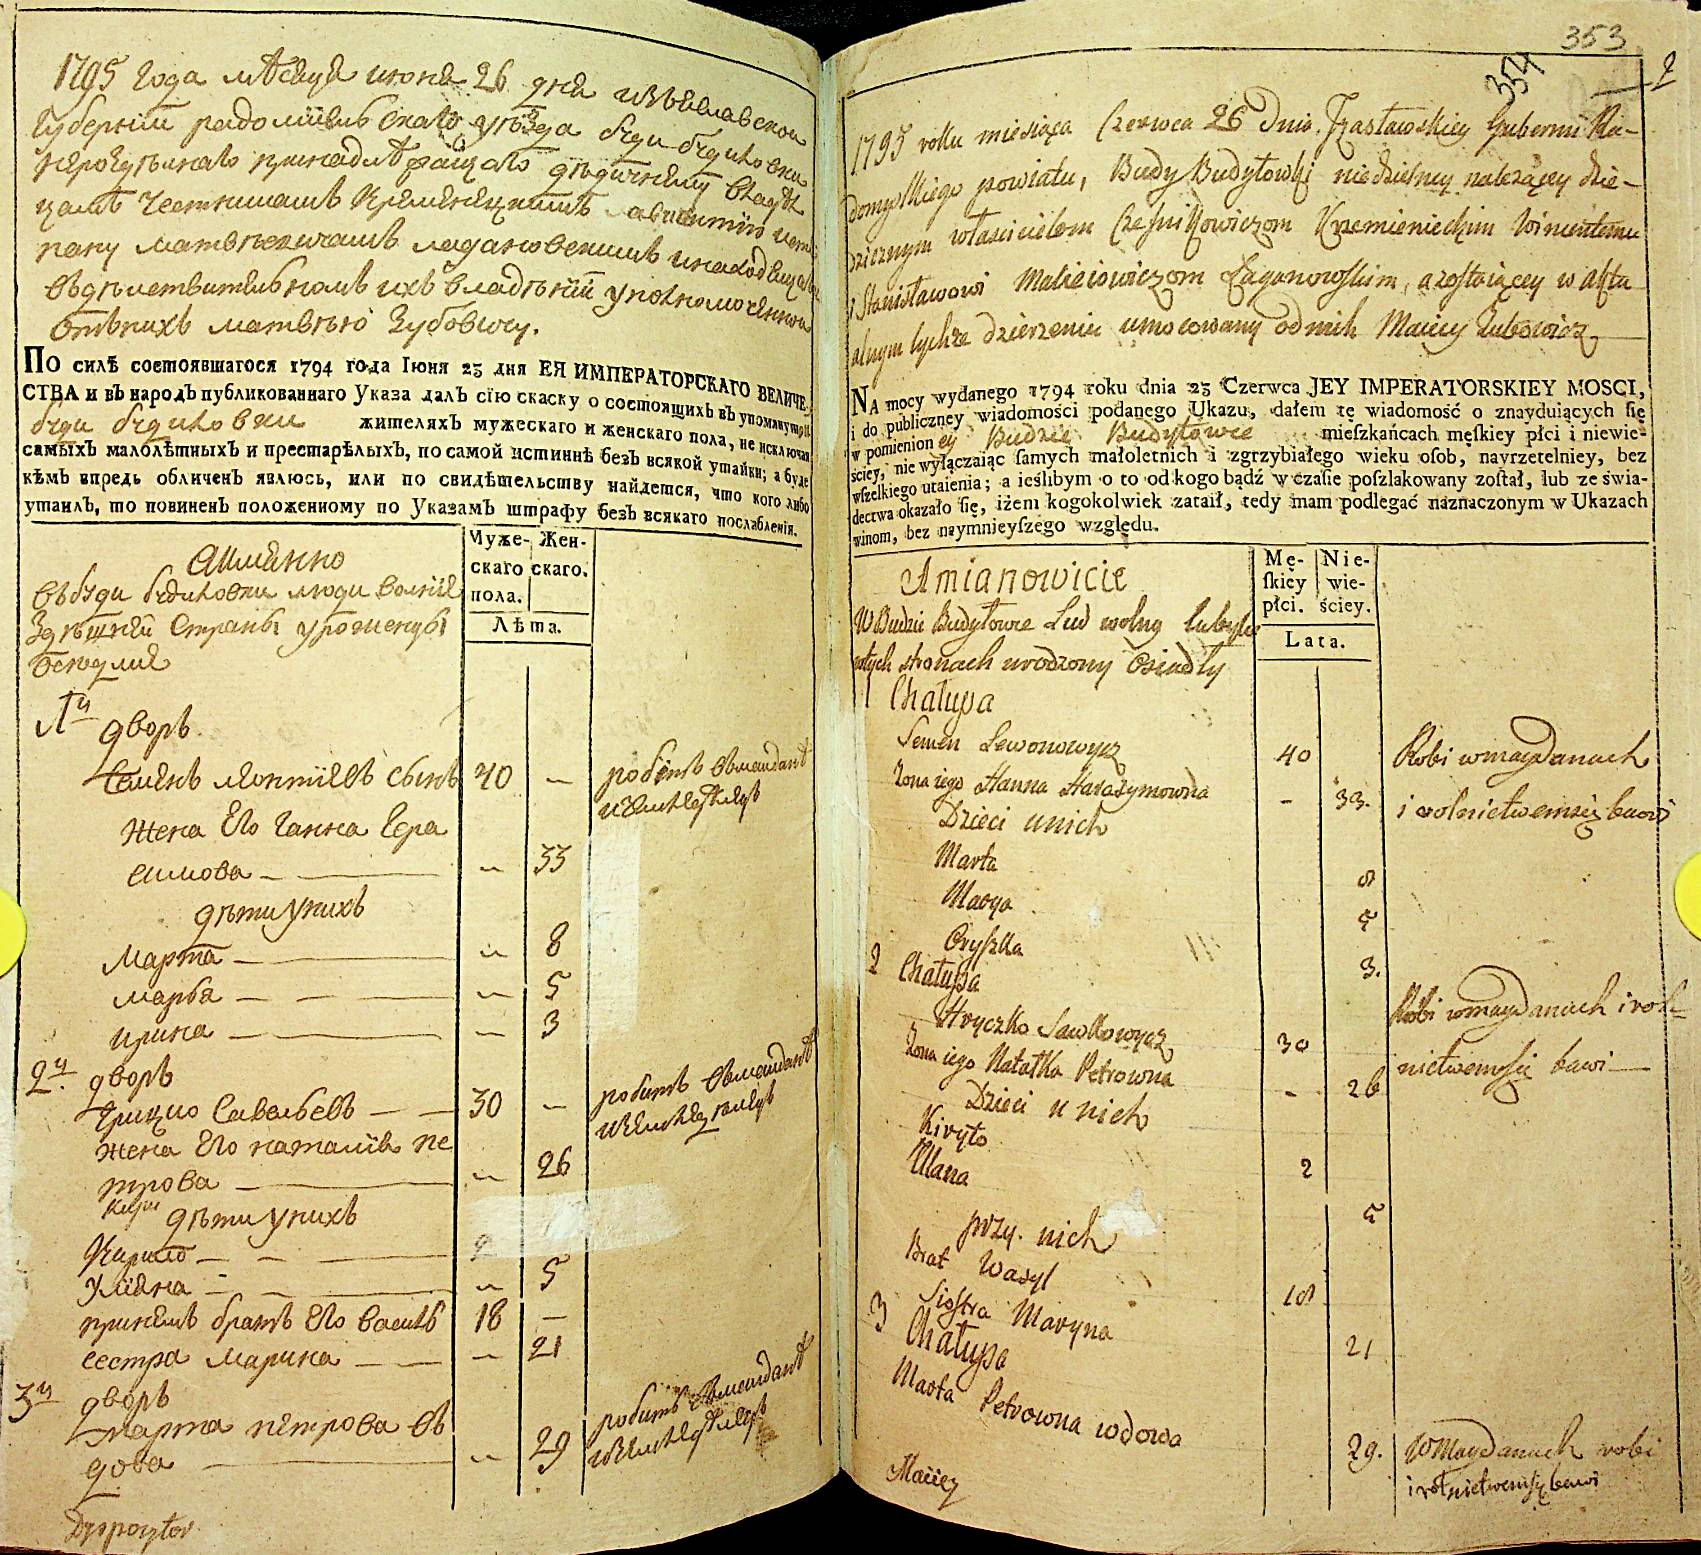 1795 года мѣсяця июня 26 дня изъяславской
Губернїи радомїшльскаго уѣзда буди будиловки
пану матвѣевичамъ лагановскимъ инаходящ
въдѣиствителномъ ихъ владѣнїи уполномоченной
отънихъ матвѣю Зубовичу.
ПО силѣ состоявшагося 1794 года Іюня 23 дня ЕЯ ИМПЕРАТОРСКАГО ВЕЛИЧЕ-
СТВА и въ народъ публикованнаго Указа далъ сїю скаску о состоящихъ въ упомянутой
буди будиловки жителяхъ мужескаго и женскаго пола, не исключая
самыхъ малолѣтныхъ и престарѣлыхъ, по самой истиннѣ безъ всякой утайки; а буде
кѣмъ впредь обличенъ явлюсь, или по свидѣтельству найдется, что кого либо
утаилъ, то повиненъ положенному по Указамъ штрафу безъ всякаго послабленія.
Муже- Жен-
скаго скаго.
пола.
Лѣта.
Аимянно
въбуди будиловки люди волнїя
Здѣшнѣй Страны уроженцы
1й дворъ
Семенъ леонтїевъ сынъ 40 — робитъ вмайданѣ
Жена Его Ганна Гера
симова — 33
дѣти унихъ
Марта — 8
марья — 5
ирина — 3
2й дворъ
Грицко Савельевъ — 30 — робитъ вмайданѣ
Жена Его наталїя пе
трова — 26
дѣти унихъ
Кирило —
Улїяна — 5
принемъ братъ Его василь 18 —
сестра марина — 21
3й дворъ
марта петрова въ робитъ вмайданѣ
дова — 29
353
354
2
1795 roku miesiąca Czerwca 26 Dnia Jzasławskiey Gubernii Ra-
domyslkiego powiatu, Budy Budyłowki niedzielney należącey dzie-
dzicznym właścicielom Cześnikowiczom Krzemienieckim Wincentemu
i Stanisławowi Macieiowiczom Łaganowskim, a zostaiącey w aktu-
alnym tychże dzierżeniu umocowany od nich Maciey Zubowicz
NA mocy wydanego 1794 roku dnia 23 Czerwca JEY IMPERATORSKIEY MOSCI,
i do publiczney wiadomości podanego Ukazu, dałem tę wiadomość o znayduiących ſię
w pomienioney Budzie Budyłowce mieſzkańcach męſkiey płci i niewie-
ściey, nie wyłączaiąc ſamych małoletnich i zgrzybiałego wieku oſob, nayrzetelniey, bez
wſzelkiego utaienia; a ieślibym o to od kogo bądź w czaſie poſzlakowany zoſtał, lub ze świa-
dectwa okazało ſię, iżem kogokolwiek zataił, tedy mam podlegać naznaczonym w Ukazach
winom, bez naymnieyſzego względu.
Mę- Nie-
ſkiey wie-
płci. ściey.
Lata.
Amianowicie
W Budzie Budyłowce Lud wolny lubylo
wtych stronach urodzony Osiadły
1 Chałupa
Semen Lewonowycz 40 Robi wmaydanach
Zona iego Hanna Harasymowna - 33. i rolnictwemsię bawi
Dzieci unich
Marta 8
Marya 5
Oryszka 3.
2 Chałupa
Hryczko Sawkowycz 30 Robi wmaydanach i rol-
Zona iego Natałka Petrowna - 26 nictwemsię bawi
Dzieci u nich
Kiryło 2
Ulana 5
przy nich
Brat Wasyl 18
Siostra Maryna 21
3 Chałupa
Marta Petrowna wdowa 29. W Maydanach robi
i rolnictwemsię bawi
Maciey